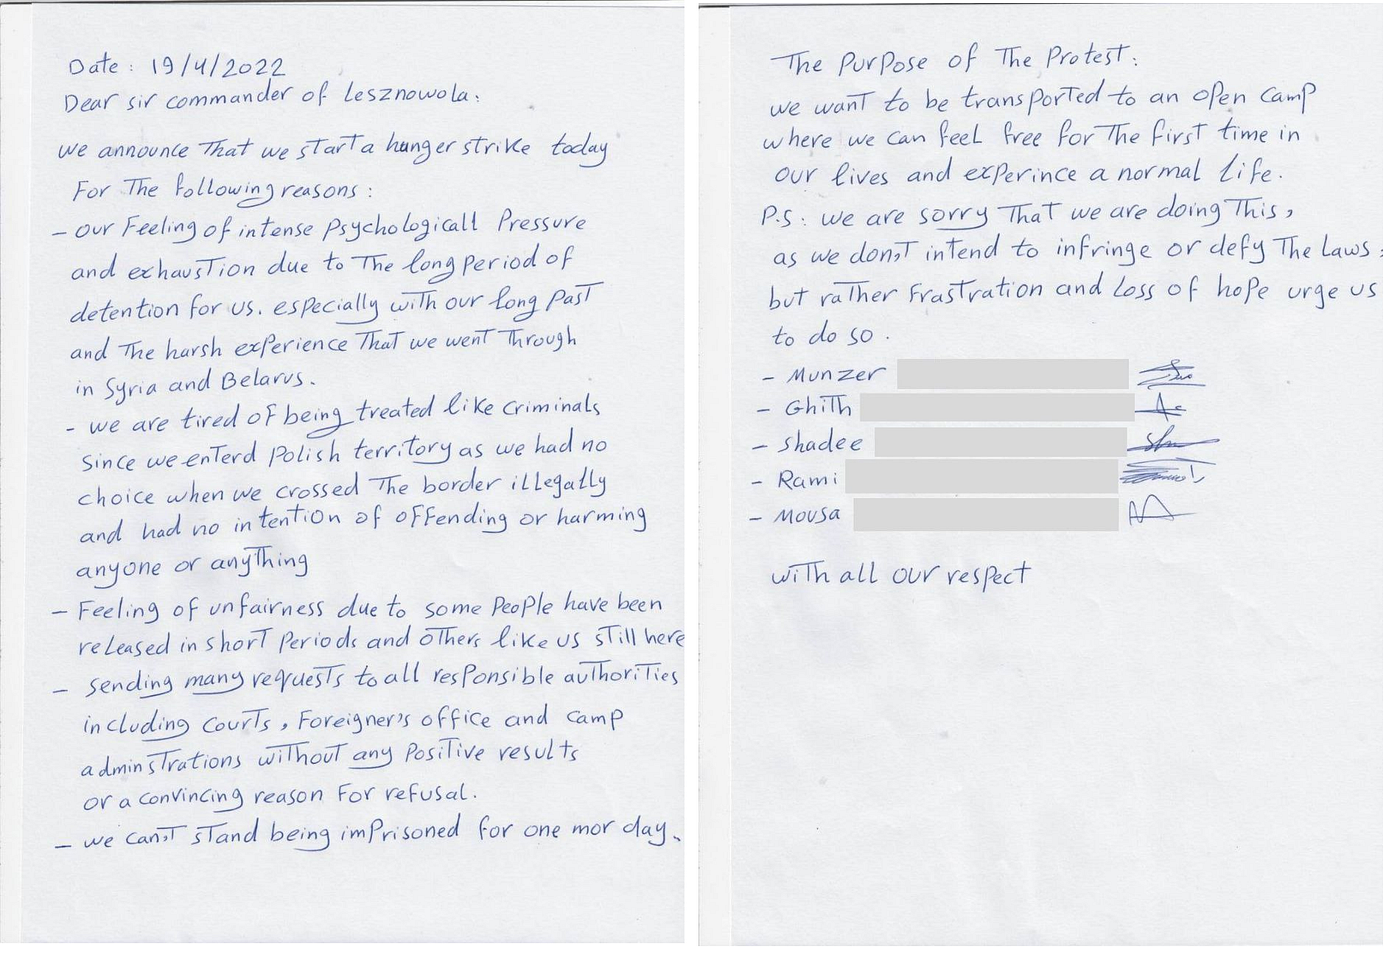 Date : 19/4/2022
Dear sir commander of Lesznowola:
we announce That we start a hunger strike today
For The following reasons :
- our Feeling of intense Psychologicall Pressure
and exhaustion due to The long period of
detention for us. especially with our long Past
and The harsh experience That we went Through
in Syria and Belarus.
- we are tired of being treated like criminals
since we enterd Polish territory as we had no
choice when we crossed The border illegally
and had no intention of offending or harming
anyone or anything
- Feeling of unfairness due to some People have been
released in short Periods and others like us still here
- sending many requests to all responsible authorities
including courts, Foreigner's office and camp
adminstrations without any Positive results
or a convincing reason For refusal.
- we can,t stand being imprisoned for one mor day.
The Purpose of The Protest:
we want to be transported to an open camp
where we can feel free for The first time in
our lives and experince a normal life.
P.S: we are sorry That we are doing This,
as we don,t intend to infringe or defy The Laws:
but rather Frastration and Loss of hope urge us
to do so .
- Munzer
- Ghith
- shadee
- Rami
- Mousa
with all our respect